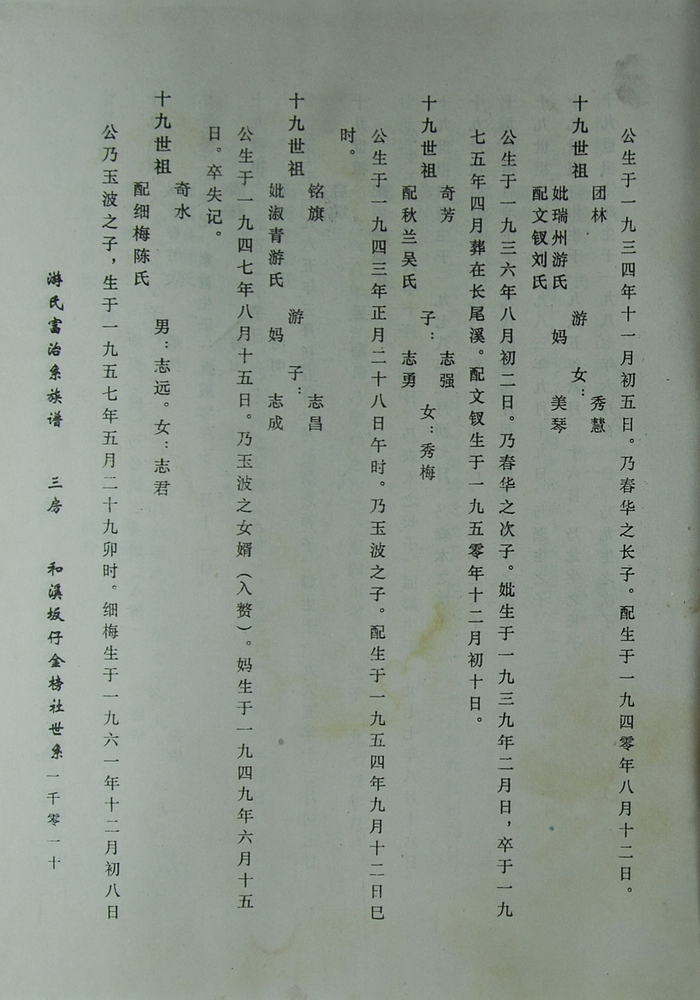 公生于一九三四年十一月初五日。乃春华之长子。配生于一九四零年八月十二日。
十九世祖
团林
妣瑞州游氏
配文钗刘氏
游妈
女：
秀慧
美琴
公生于一九三六年八月初二日。乃春华之次子。妣生于一九三九年二月日，卒于一九
七五年四月葬在长尾溪。配文钗生于一九五零年十二月初十日。
十九世祖
奇芳
配秋兰吴氏
子：
志强
志勇
女：秀梅
公生于一九四三年正月二十八日午时。乃玉波之子。配生于一九五四年九月十二日巳
时。
十九世祖
铭旗
妣淑青游氏
游妈
子：
志昌
志成
公生于一九四七年八月十五日。乃玉波之女婿（入赘）。妈生于一九四九年六月十五
日。卒失记。
十九世祖
奇水
配细梅陈氏
男：志远。女：志君
公乃玉波之子，生于一九五七年五月二十九卯时。细梅生于一九六一年十二月初八日
游氏富治系族谱 三房 和溪坂仔金榜社世系 一千零一十